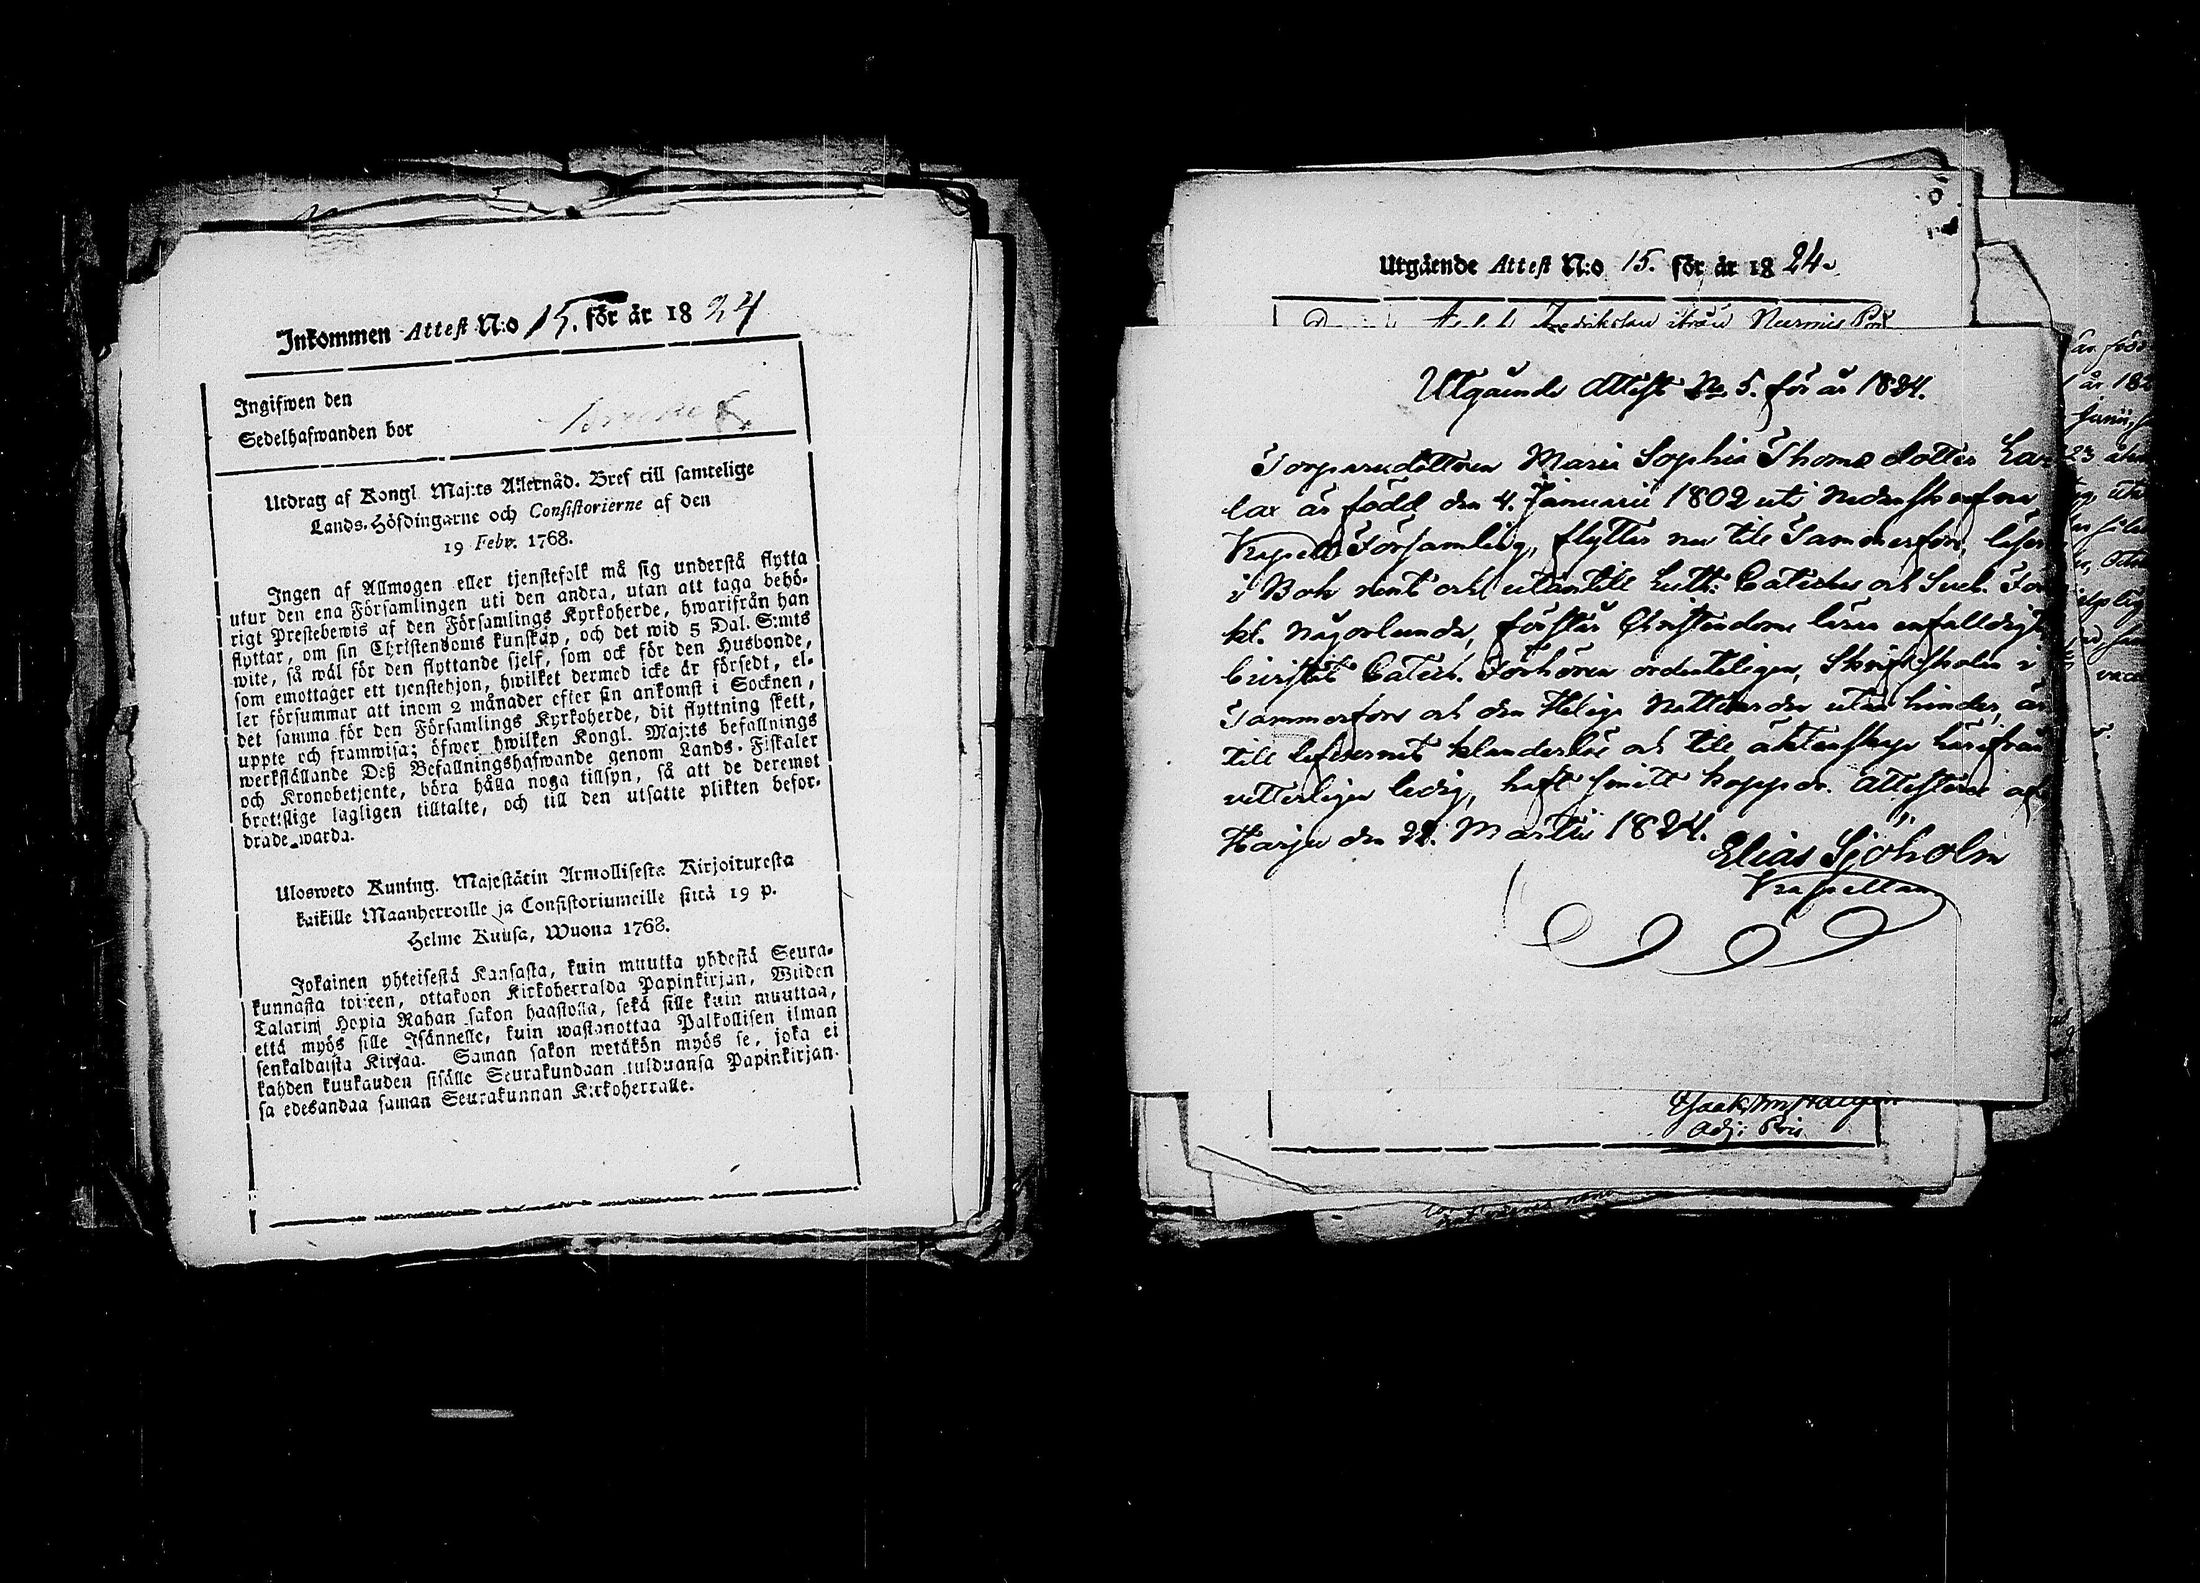 Inkommen Attest N:o 15. för år 1824
Ingifwen den
Sedelhafwanden bor
Utdrag af Kongl. Maj:ts Allernåd. Bref till samtelige
Lands-Höfdingarne och Consistorierne af den
19 Febr. 1768.
Ingen af Allmogen eller tjenstefolk må sig understå flytta
utur den ena Församlingen uti den andra, utan att taga behö-
rigt Prestebewis af den Församlings Kyrkoherde, hwarifrån han
flyttar, om sin Christendoms kunskap, och det wid 5 Dal. S:mts
wite, så wäl för den flyttande sjelf, som ock för den Husbonde,
som emottager ett tjenstehjon, hwilket dermed icke är försedt, el-
ler försummar att inom 2 månader efter sin ankomst i Socknen,
det samma för den Församlings Kyrkoherde, dit flyttning skett,
uppte och framwisa; öfwer hwilken Kongl. Maj:ts befallnings
werkställande Deß Befallningshafwande genom Lands-Fiskaler
och Kronobetjente, böra hålla noga tillsyn, så att de deremot
brottslige lagligen tilltalte, och till den utsatte plikten befor-
drade warda.
Uloswetö Kuning. Majestätin Armollisesta Kirjoituxesta
kaikille Maanherroille ja Consistoriumeille siitä 19 p.
Helme Kuusa, Wuona 1768.
Jokainen yhteisestä Kansasta, kuin muutta yhdestä Seura-
kunnasta toiseen, ottakoon Kirkoherralda Papinkirjan, Wiiden
Talarin Hopia Rahan sakon haastolla, sekä sille kuin muuttaa,
että myös sille Isännelle, kuin wastanottaa Palkollisen ilman
senkaldaista Kirjaa. Saman sakon wetäkön myös se, joka ei
kahden kuukauden sisälle Seurakundaan tulduansa Papinkirjan-
sa edesandaa saman Seurakunnan Kirkoherralle.
Utgående Attest N:o 15. för år 1824.
Fredrikslau ifrån Nurmis
Utgående Attest No 5. för år 1824.
Torparedottren Maria Sophia Thomæ dotter Lax
lax är född den 4. Januarii 1802 uti nedanskrefne
Kapell Församling, flytter nu till Tammerfors, läser
i Bok rent och utantill Luth: Cateches och Sveb. För
kl. någorlunda, förstår Christendoms läran enfalldigt
bivistat Catech. Förhören ordenteligen, Skriftskolan i
Tammerfors och den Helige Nattvarden utan hinder, är
till lefvernet klanderlös och till äktenskap härifrån
vetterligen ledig, haft smitt koppor. Attesterar af
Harju den 22. Martii 1824.
Elias Sjöholm
Kapellan
Adj: